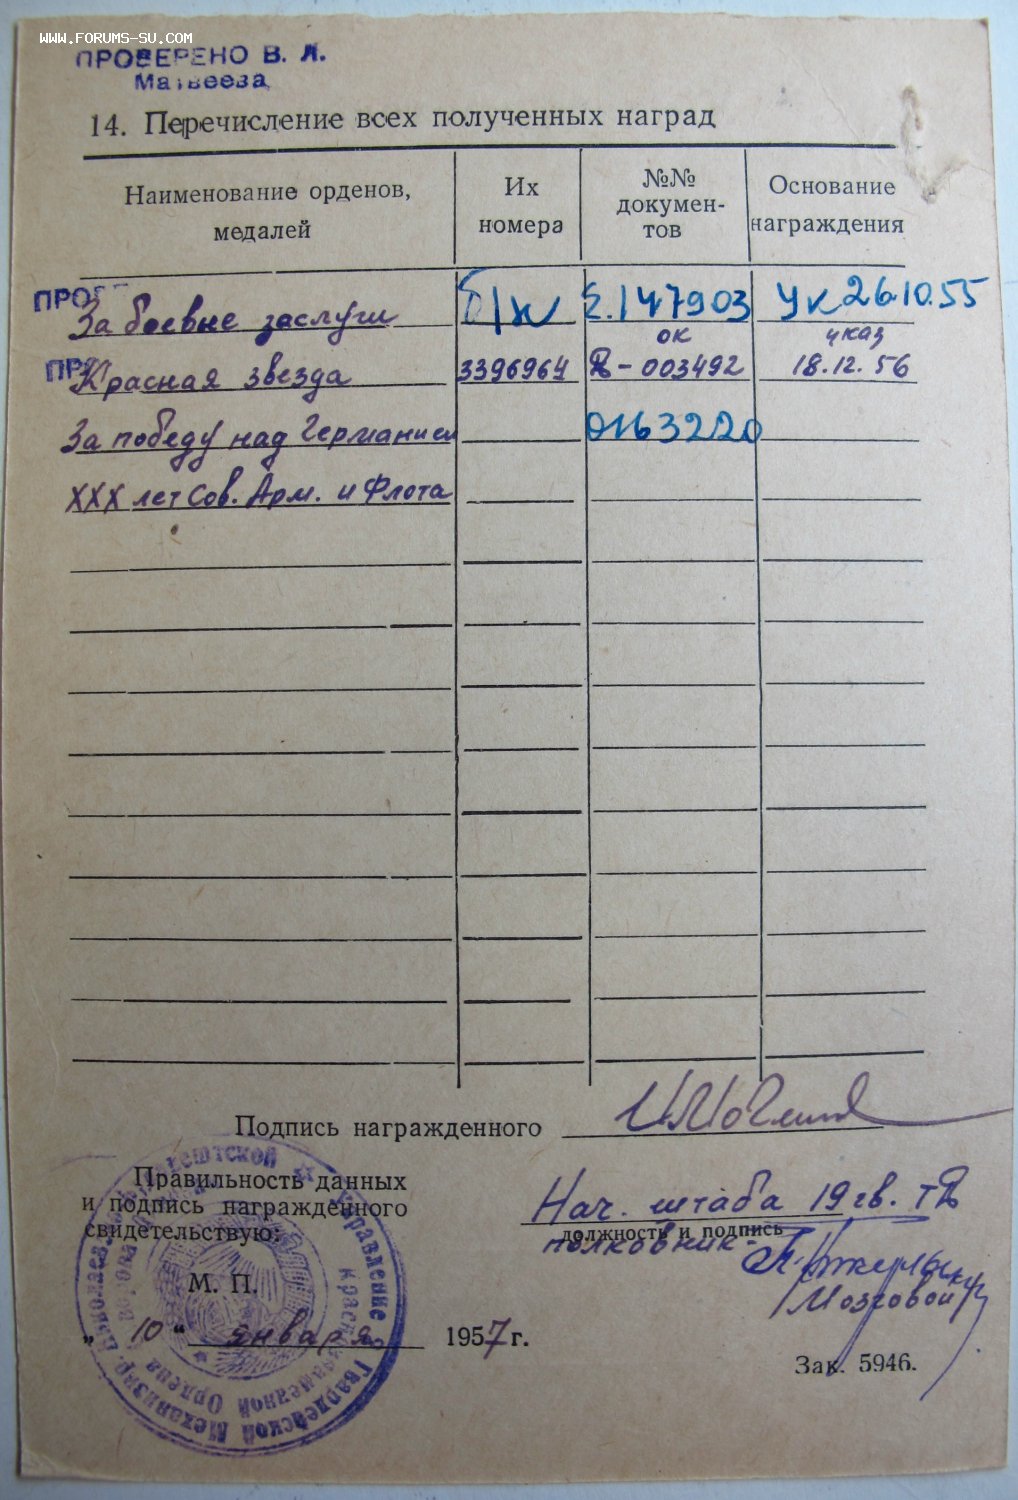 WWW.FORUMS-SU.COM
ПРОВЕРЕНО В. Л.
Матвеева
14. Перечисление всех полученных наград
Наименование орденов, медалей
Их номера
№№ докумен-тов
Основание награждения
За боевые заслуги б/н 147903 Ук 26.10.55
Красная звезда 3396964 003492 указ 18.12.56
За победу над Германией 0163220
XXX лет Сов. Арм. и Флота
Подпись награжденного
Правильность данных
и подпись награжденного
свидетельствую:
Нач. штаба 19 гв. тд
должность и подпись
полковник
Мозговой
М. П.
„ 10 “ января 1957 г.
Зак. 5946.
Управление Гвардейской Механизир. Николаевско-Будапештской
Краснознаменной Ордена